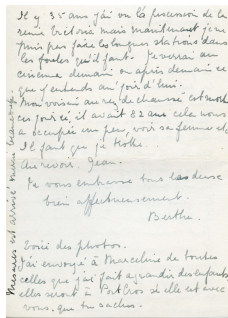 Il y 35 ans j'ai vu la succession de la
reine Victoria mais maintenant je ne
puis pas faire les longues stations dans
les foules qu'il faut. Je verrai au
cinéma demain ou après demain ce
que j'entends aujourd'hui.
Mon voisin au rez de chaussé est mort
ces jours ci, il avait 82 ans cela nous
a occupés un peu, voir sa femme etc
Il faut que je
Au revoir. Jean.
Je vous embrasse tous les deux
bien affectueusement.
Berthe.
Voici des photos.
J'ai envoyé à Marceline de toutes
celles que j'ai fait agrandir des enfants
elles seront à Port Cros si elle est avec
vous, que tu saches.
est arrivé beaucoup.